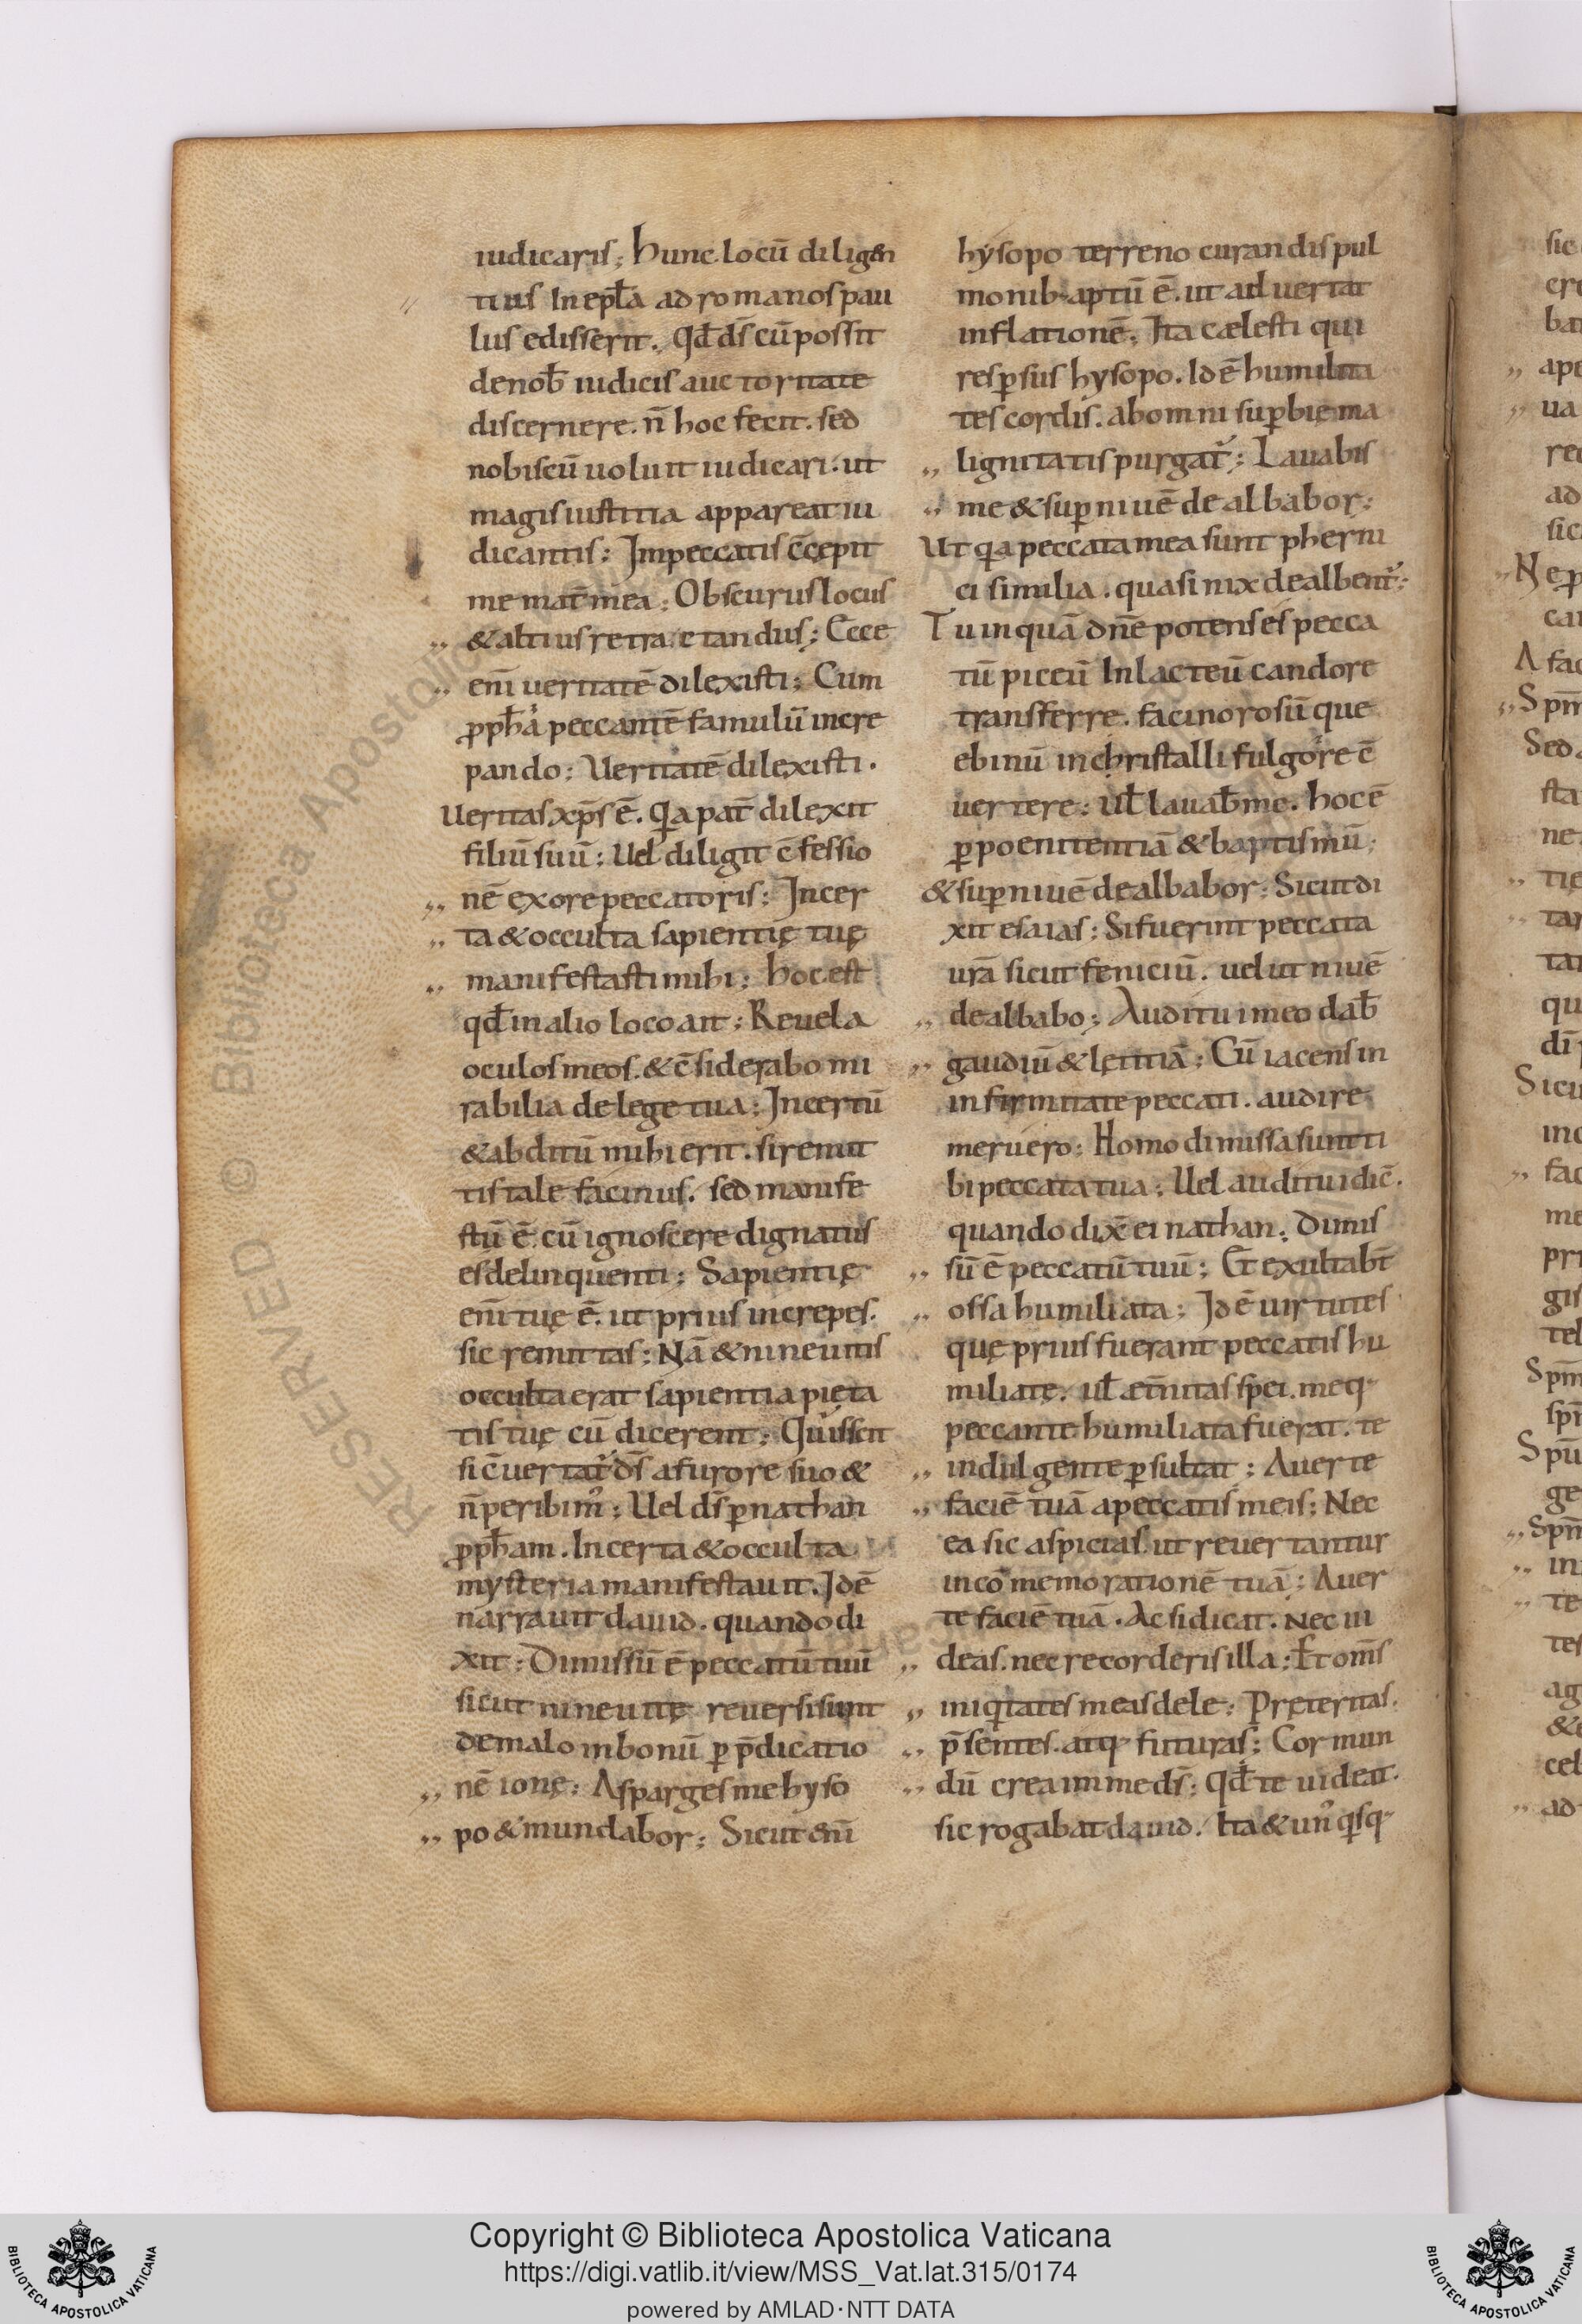 iudicaris; Hunc locū diligen
tius In epl̄a ad romanos pau
lus edisserit. Qd̄ ds̄ cū possit
de nob̄ iudicis auctoritate
discernere. n̄ hoc fecit. sed
nobiscū uoluit iudicari. ut
magis iustitia appareat iu
dicantis; Impeccatis c̄cępit
me mat̄ mea; Obscurus locus
„ & altius retractandus; Ecce
„ enī ueritatē dilexisti; Cum
ꝓph̄a peccantē famulū incre
pando; Ueritatē dilexisti.
Ueritas xp̄s ē. Qa pat̄ dilexit
filiū suū; Uel diligit c̄fessio
„ nē ex ore peccatoris; Incer
„ ta & occulta sapientię tuę
„ manifestasti mihi; hoc est
qd̄ in alio loco ait; Reuela
oculos meos. & c̄siderabo mi
rabilia de lege tua; Incertū
& abditū mihi erit. si remit
tis tale facinus. sed manife
stū ē. cū ignoscere dignatus
es delinquenti; Sapientię
enī tuę ē. ut prius increpes.
sic remittas; Nā & nineuitis
occulta erat sapientia pięta
tis tuę cū dicerent; Quis scit
si c̄uertat᷑ ds̄ a furore suo &
n̄ peribim᷒; Uel ds̄ ꝑ nathan
ꝓph̄am. Incerta & occulta
mysteria manifestauit. Idē
narrauit dauid. quando di
xit; Dimissū ē peccatū tuū
sicut nineuitę reuersi sunt
de malo in bonū ꝑ p̄dicatio
„ nē ionę; Asparges me hyso
„ po & mundabor; Sicut enī
hysopo terreno curandis pul
monib; aptū ē. ut aduertat
inflationē; Ita cælesti qui
resꝑsus hysopo. Id ē humilita
tes cordis. ab omni suꝑbię ma
„ lignitatis purgat᷑; Lauabis
„ me & suꝑ niuē dealbabor;
Ut qa peccata mea sunt pheni
ci similia. quasi nix dealbent᷑;
Tu inquā dn̄e potens es pecca
tū piceū In lacteū candore
transferre. facinorosū que
ebinū in christalli fulgore c̄
uertere; Ul̄ lauab̄ me. hoc ē
ꝑ poenitentiā & baptismū;
& suꝑ niuē dealbabor; Sicut di
xit esaias; Si fuerint peccata
urā sicut feniciū. uelut niuē
„ dealbabo; Auditui meo dab̄
„ gaudiū & lętitiā; Cū iacens in
infirmitate peccati. audire
meruero; Homo dimissa sunt ti
bi peccata tua; Uel auditui dic̄.
quando dix̄ ei nathan; Dimis
„ sū ē peccatū tuū; Et exultabt̄
„ ossa humiliata; Id ē uirtutes
quę prius fuerant peccatis hu
miliatę. ul̄ æt̄nitas spei. meq;
peccante humiliata fuerat. te
„ indulgente ꝑsultat; Auerte
„ faciē tuā a peccatis meis; Nec
ea sic aspicias. ut reuertantur
in cōmemorationē tuā; Auer
te faciē tuā. Ac si dicat. Nec ui
„ deas. nec recorderis illa; Et om̄s
„ iniqitates meas dele; Pręteritas.
„ p̄sentes. atq; futuras; Cor mun
„ dū crea in me ds̄; Qd̄ te uideat.
sic rogabat dauid. Ita & un᷒ qisq;
Copyright © Biblioteca Apostolica Vaticana
https://digi.vatlib.it/view/MSS_Vat.lat.315/0174
powered by AMLAD·NTT DATA